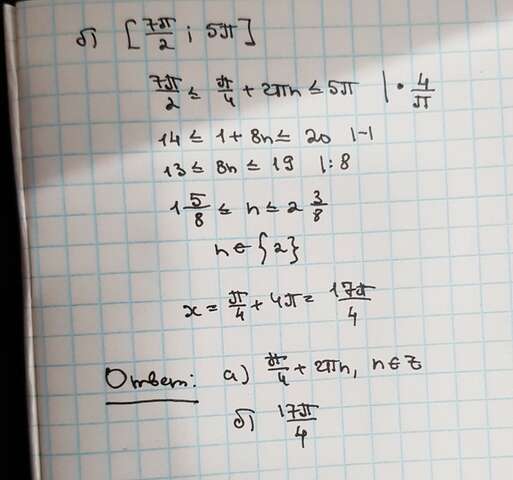 б) [7π/2; 5π]
7π/2 ≤ π/4 + 2πn ≤ 5π | · 4/π
14 ≤ 1 + 8n ≤ 20 |-1
13 ≤ 8n ≤ 19 |:8
1 5/8 ≤ n ≤ 2 3/8
n ∈ {2}
x = π/4 + 4π = 17π/4
Ответ: а) π/4 + 2πn, n ∈ Z
б) 17π/4